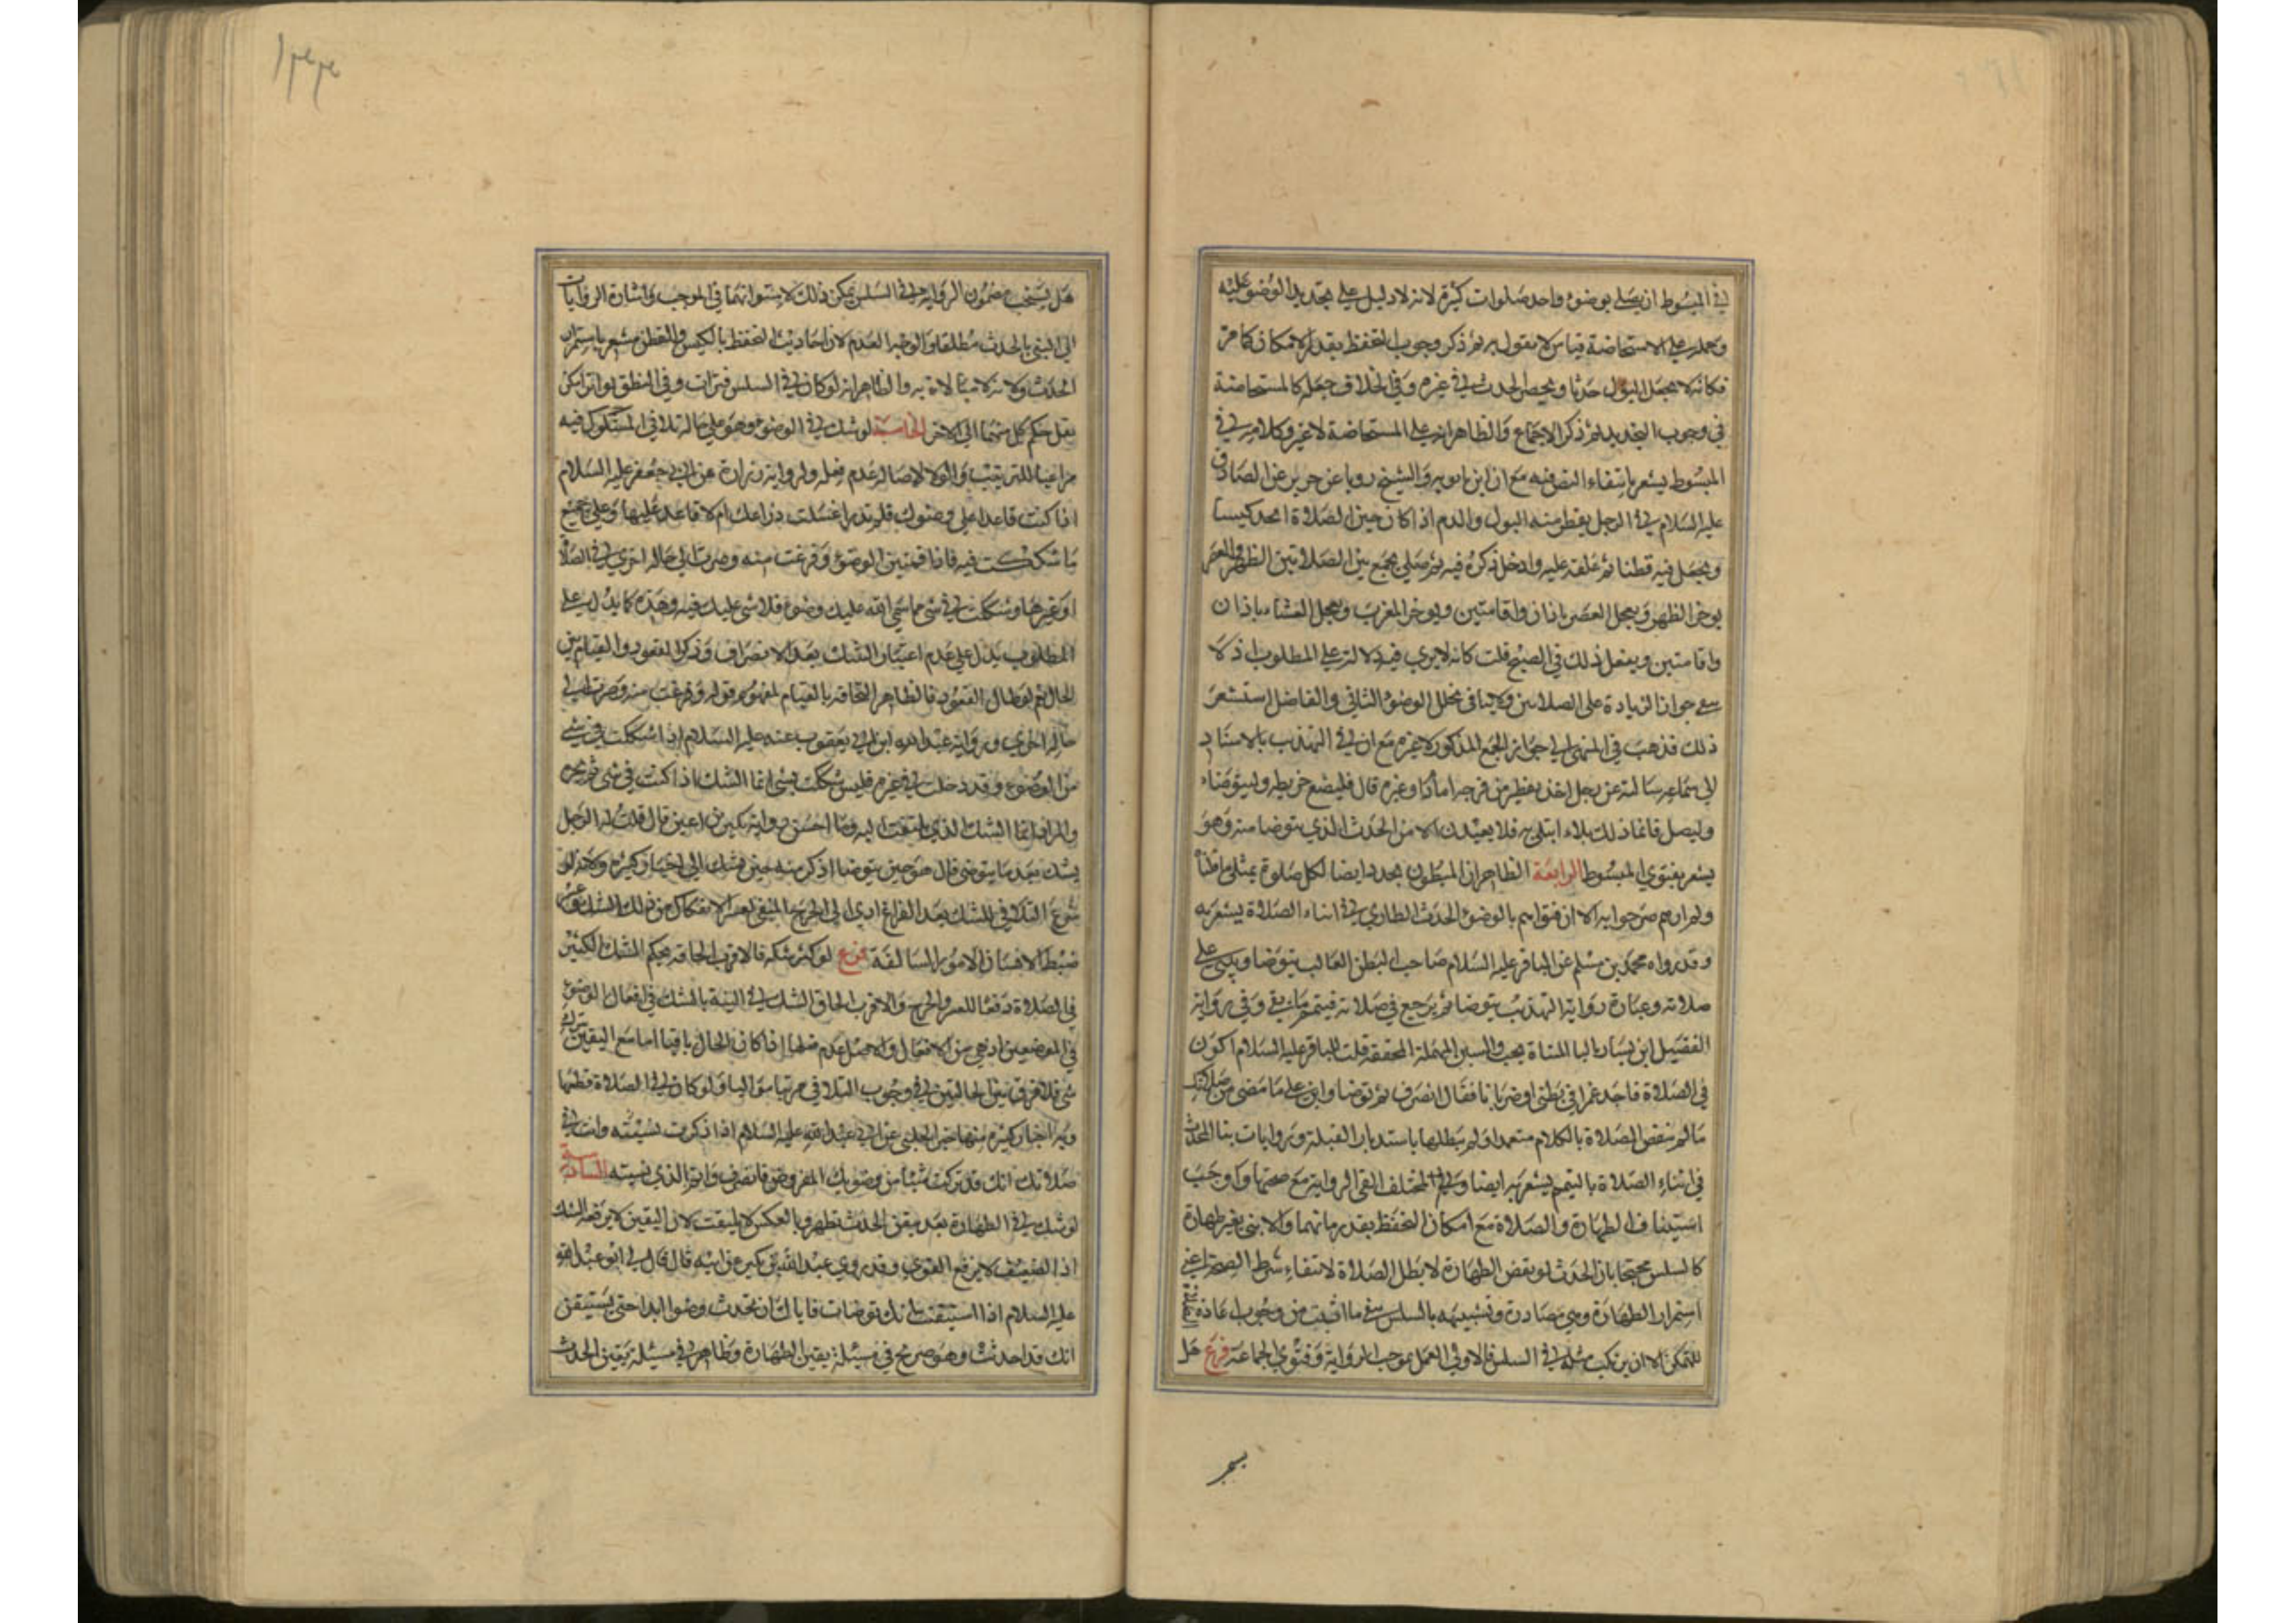 في المبسوط ان يصلي بوضوء واحد صلوات كثيرة لانه لا دليل على تجديد الوضوء عليه
وحمله على الاستحاضة قياس لا نقول به ثم ذكر وجوب التحفظ بقدر الامكان كما مر
فكانه لا يجعل البول حدثا ويحصل الحدث في غيره وفي الخلاف جعله كالمستحاضة
في وجوب التجديد ثم ذكر الاجماع والظاهر انه على المستحاضة لا غير وكلامه في
المبسوط يشعر بانتفاء النص فيه مع ان ابن بابويه والشيخ رويا عن حريز عن الصادق
عليه السلام في الرجل يقطر منه البول والدم اذا كان حين الصلاة اتخذ كيسا
ويجعل فيه قطنا ثم علقه عليه وادخل ذكره فيه ثم صلى يجمع بين الصلاتين الظهر والعصر
يوخر الظهر ويعجل العصر باذان واقامتين ويوخر المغرب ويعجل العشاء باذان
واقامتين ويفعل ذلك في الصبح قلت كانه لا يرى فيه دلالة على المطلوب اذ لا
مع جواز الزيادة على الصلاتين ولا ينافي تخلل الوضوء الثاني والفاضل استشعر
ذلك فذهب في المنتهى الى جواز الجمع المذكور لا غيره مع ان في التهذيب بالاسناد
الى سماعه سالته عن رجل اخذه تقطير من فرجه اما دم او غيره قال فليضع خريطة وليتوضاء
وليصل فانما ذلك بلاء ابتلي به فلا يعيدن الا من الحدث الذي يتوضا منه وهو
يشعر بفتوى المبسوط الرابعة الظاهر ان المبطون يجدد ايضا لكل صلوة بمثل ما قلناه
ولم ارهم صرحوا به الا ان فتواهم بالوضوء للحدث الطاري في اثناء الصلاة يشعر به
وقد رواه محمد بن مسلم عن الباقر عليه السلام صاحب البطن الغالب يتوضا ويبني على
صلاته وعبارة رواية التهذيب يتوضا ثم يرجع في صلاته فيتم ما بقي وفي رواية
الفضيل ابن يسار باليا المثناة تحت والسين المهملة المخففة قلت للباقر عليه السلام اكون
في الصلاة فاجد غمزا في بطني او ضربانا فقال انصرف ثم توضا وابن على ما مضى من صلاتك
ما لم تنقض الصلاة بالكلام متعمدا ولم يبطلها باستدبار القبلة وروايات بناء المحدث
في اثناء الصلاة بالتيمم يشعر به ايضا وفي المختلف القى الرواية مع صحتها واوجب
استيناف الطهارة والصلاة مع امكان التحفظ بقدر زمانهما والا بنى بغير طهارة
كالسلس محتجا بان الحدث لو نقض الطهارة لابطل الصلاة لانتفاء شرط الصحة اعني
استمرار الطهارة وهي مصادرة وتشبيهه بالسلس ينفي ما اثبت من وجوب اعادة الصلاة
للمتمكن الا ان يرتكب مثله في السلس فالاولى العمل بموجب الرواية وفتوى الجماعة فرع هل
هل يستحب مضمون الرواية في السلس يمكن ذلك لاستوائهما في الموجب واشارة الروايات
الى البنى بالحدث مطلقا والوجه العدم لان احاديث التحفظ بالكيس والقطن مشعر باستمرار
الحدث ولانه لا مبالاة به والظاهر انه لو كان في السلس فترات وفي البطن تواتر امكن
نقل حكم كل منهما الى الاخر الخامسة لو شك في الوضوء وهو على حاله تلافى المشكوك فيه
مراعيا للترتيب والولا لاصالة عدم فعله ولرواية زرارة عن ابي جعفر عليه السلام
اذا كنت قاعدا على وضوئك فلم تدر اغسلت ذراعك ام لا فاعد عليها وعلى جميع
ما شككت فيه فاذا قمت من الوضوء وفرغت منه وصرت الى حالة اخرى في الصلاة
او غيرها وشككت في شي مما سمى الله عليك وضوءه فلا شي عليك فيه وهذه كما يدل على
المطلوب يدل على عدم اعتبار الشك بعد الانصراف وذكر القعود والقيام بين
الحال ثم لو طال القعود فالظاهر التحاقه بالقيام لمفهوم قوله وفرغت منه وصرت الى
حالة اخرى ورواية عبد الله ابن ابي يعفور عنه عليه السلام اذا شككت في شي
من الوضوء وقد دخلت في غيره فليس شكك بشي انما الشك اذا كنت في شي لم تجزه
والمراد انما الشك الذي يلتفت اليه وما احسن رواية بكير بن اعين قال قلت له الرجل
يشك بعد ما يتوضى قال هو حين يتوضا اذكر منه حين يشك الى اخبار كثيرة ولانه لو
شرع التلافي للشك بعد الفراغ ادى الى الحرج المنفي لعسر الانفكاك من ذلك الشك وعسر
ضبط الانسان الامور السالفة فرع لو كثر شكه فالاقرب الحاقه بحكم الشك الكثير
في الصلاة دفعا للعسر والحرج والاقرب الحاق الشك في النية بالشك في افعال الوضوء
في الموضعين اذ هي من الافعال والاصل عدم فعلها اذا كان الحال باقيا اما مع اليقين بترك
شي فلا فرق بين الحالتين في وجوب التلافي مرتبا مواليا ولو كان في الصلاة قطعها
وبه اخبار كثيرة منها خبر الحلبي عن ابي عبد الله عليه السلام اذا ذكرت نسيته وانت في
صلاتك انك قد تركت شيئا من وضوئك المفروض فانصرف واتم الذي نسيته السادسة
لو شك في الطهارة بعد تيقن الحدث تطهر وبالعكس لا يلتفت لان اليقين لا يرفعه الشك
اذ الضعيف لا يرفع القوي وقد روى عبد الله بن بكير عن ابيه قال قال لي ابو عبد الله
عليه السلام اذا استيقنت انك توضات فاياك ان تحدث وضوا ابدا حتى يستيقن
انك قد احدثت وهو صريح في مسئلة يقين الطهارة وظاهر في مسئلة تيقن الحدث